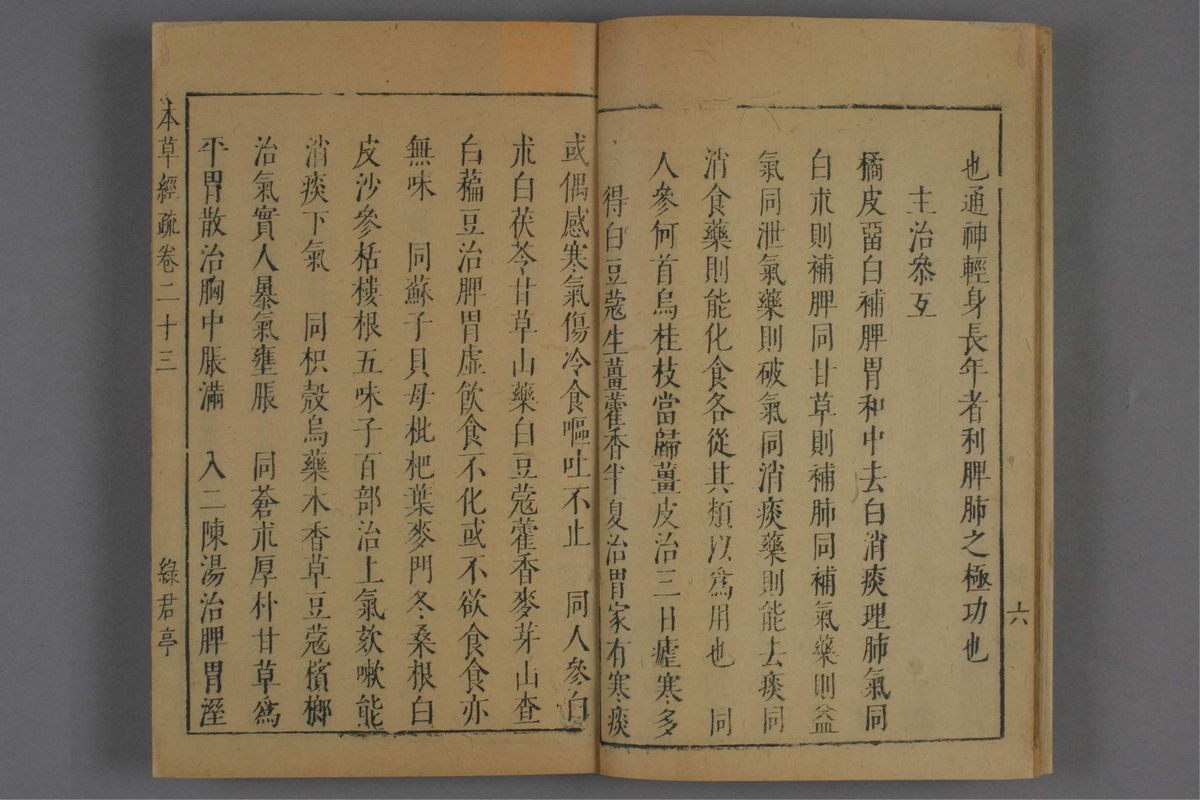 也通神輕身長年者利脾肺之極功也
主治叅互
橘皮畱白補脾胃和中去白消痰理肺氣同
白朮則補脾同甘草則補肺同補氣藥則益
氣同泄氣藥則破氣同消痰藥則能去痰同
消食藥則能化食各從其類以爲用也　同
人參何首烏桂枝當歸薑皮治三日瘧寒多
得白豆蔻生薑藿香半夏治胃家有寒痰
六
或偶感寒氣傷冷食嘔吐不止　同人參白
朮白茯苓甘草山藥白豆蔻藿香麥芽山查
白藊豆治脾胃虛飲食不化或不欲食食亦
無味　同蘇子貝母枇杷葉麥門冬桑根白
皮沙參栝樓根五味子百部治上氣欬嗽能
消痰下氣　同枳殼烏藥木香草豆蔻檳榔
治氣實人暴氣壅脹　同蒼朮厚朴甘草爲
平胃散治胸中脹滿　入二陳湯治脾胃溼
本草經疏卷二十三
綠君亭